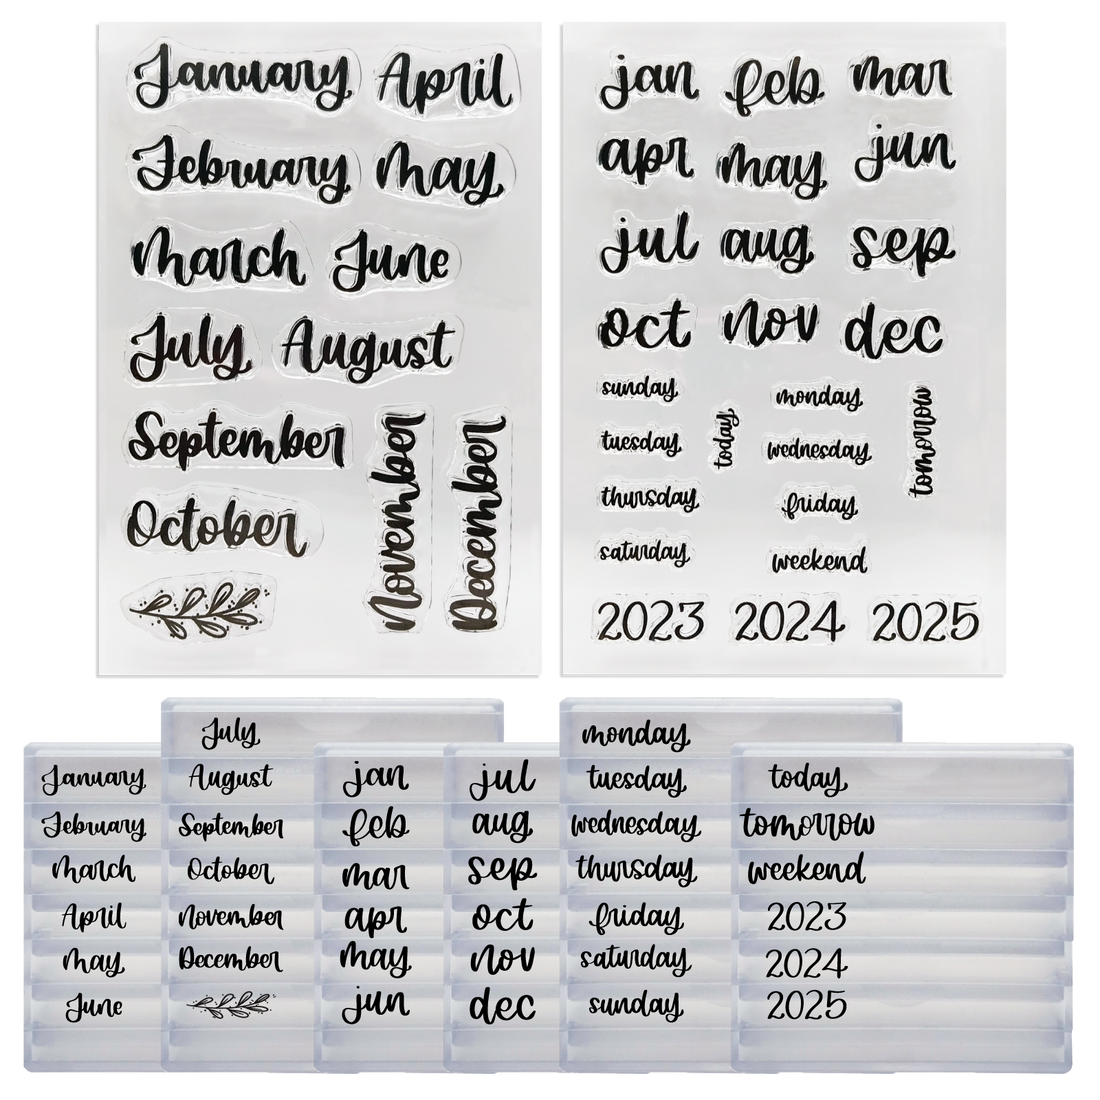 January April
February May
March June
July August
September
October
November
December
jan feb mar
apr may jun
jul aug sep
oct nov dec
sunday
tuesday
thursday
saturday
today
monday
wednesday
friday
weekend
tomorrow
2023 2024 2025
January
February
March
April
May
June
July
August
September
October
November
December
jan
feb
mar
apr
may
jun
jul
aug
sep
oct
nov
dec
monday
tuesday
wednesday
thursday
friday
saturday
sunday
today
tomorrow
weekend
2023
2024
2025